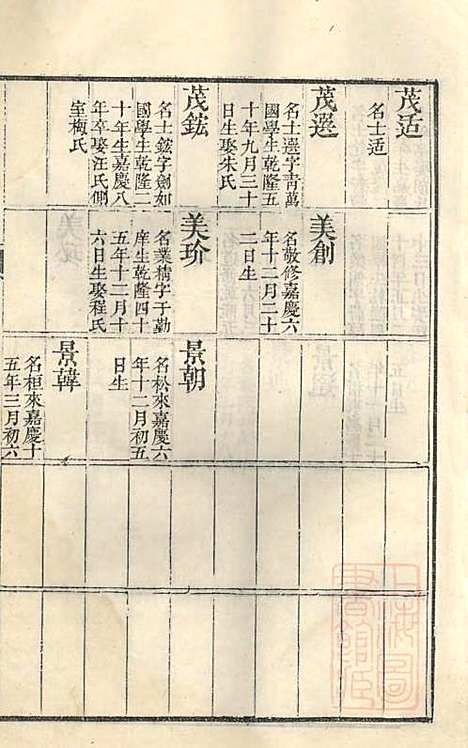 茂适
名士适
茂遷
名士遷字青萬
國學生乾隆五
十年九月三十
日生娶朱氏
茂鋐
名士鋐字劍如
國學生乾隆二
十年生嘉慶八
年卒娶汪氏側
室梅氏
美創
名敬修嘉慶六
年十二月二十
二日生
美玠
名業精字子勤
庠生乾隆四十
五年十二月十
六日生娶程氏
景朝
名松來嘉慶六
年十二月初五
日生
景韓
名桓來嘉慶十
五年三月初六
上海圖
書館藏